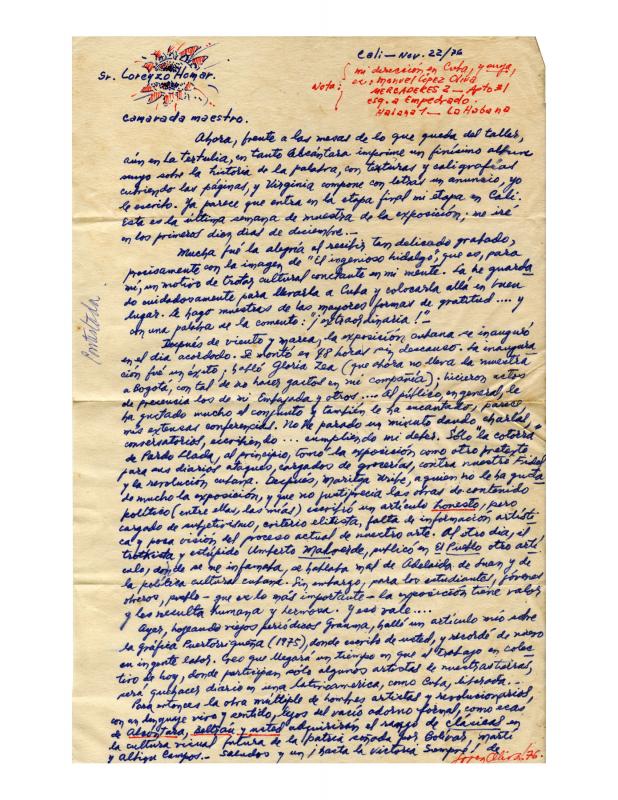 Cali-Nov. 22/76
Sr. Lorenzo Homar.
Nota:
mi dirección en Cuba, y suya,
es, Manuel López Oliva
MERCADERES 2 - Apto 21
esq. a Empedrado.
Habana 1 - La Habana
camarada maestro.
Ahora, frente a las mesas de lo que queda del taller,
aún en La Tertulia, en tanto Alcántara imprime un finísimo álbum
suyo sobre la historia de la palabra, con texturas y caligrafías
cubriendo las páginas, y Virginia compone con letras un anuncio, yo
le escribo. Ya parece que entra en la etapa final mi etapa en Cali.
Esta es la última semana de muestra de la exposición; me iré
en los primeros diez días de diciembre.-
Mucha fué la alegría al recibir tan delicado grabado,
precisamente con la imagen de "El ingenioso hidalgo", que es, para
mí, un motivo de trotar cultural constante en mi mente. La he guarda
do cuidadosamente para llevarla a Cuba y colocarla allá en buen
lugar. Le hago muestras de las mayores formas de gratitud .... y
con una palabra se la comento: "¡extraordinaria!"
Después de viento y marea, la exposición cubana se inauguró
en el día acordado. Se montó en 48 horas sin descanso. La inaugura
ción fué un éxito; habló Gloria Zea (que ahora no lleva la muestra
a Bogotá, con tal de no hacer gastos en mi compañía); hicieron actos
de presencia los de mi Embajada y otros .... Al público, en general, le
ha gustado mucho el conjunto y también le ha encantado, parece
mis extensas conferencias. No he parado un minuto dando charlas,
conversatorios, escribiendo ... cumpliendo mi deber. Sólo "la cotorra"
de Pardo Llada, al principio, tomó la exposición como otro pretexto
para sus diarios ataques, cargados de groserías, contra nuestro Fidel
y la revolución cubana. Después, Maritza Uribe, a quien no le ha gusta
do mucho la exposición, y que no justiprecia las obras de contenido
político (entre ellas, las mías) escribió un artículo honesto, pero
cargado de subjetivismo, criterio elitista, falta de información artísti
ca y poca visión del proceso actual de nuestro arte. Al otro día, el
trotskista y estúpido Umberto Malverde, publicó en El Pueblo otro artí
culo, donde se me infamaba, se hablaba mal de Adelaida de Juan y de
la política cultural cubana. Sin embargo, para los estudiantes, jóvenes
obreros, pueblo - que es lo más importante - la exposición tiene valor
y les resulta humana y hermosa. Y eso vale ....
Ayer, hojeando viejos periódicos Granma, hallé un artículo mío sobre
la gráfica Puertorriqueña (1975), donde escribo de usted, y recordé de nuevo
su ingente labor. Creo que llegará un tiempo en que el trabajo en colec
tivo de hoy, donde participan sólo algunos artistas de nuestras tierras,
será quehacer diario en una latinoamerica, como Cuba, liberada.-
Para entonces la obra múltiple de hombres artistas y revolucionarios,
con un lenguaje vivo y sentido, lejos del vacío adorno formal, como esas
de Alcántara, Beltrán y usted adquirirán el rango de clásicas en
la cultura visual futura de la patria soñada por Bolívar, Martí
y Albizu Campos.- Saludos y un ¡hasta la victoria Siempre! de
López Oliva '76.
Contestada